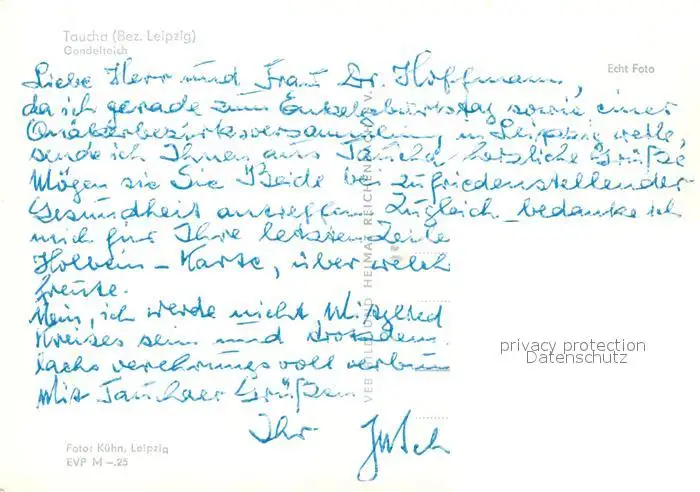 Taucha (Bez. Leipzig)
Gondelteich
Echt Foto
Liebe Herr und Frau Dr. Hoffmann,
da ich gerade zum Enkelgeburtstag sowie einer
Quäkerbezirksversammlung in Leipzig weile,
sende ich Ihnen aus Taucha herzliche Grüße
Mögen sie Sie Beide bei zufriedenstellender
Gesundheit antreffen. Zugleich bedanke ich
mich für Ihre letzten Zeile
Holbein-Karte, über welch
freute.
Nein, ich werde nicht Mitglied
Kreises sein und trotzdem
verehrungsvoll verbun
Mit Tauchaer Grüßen
Ihr
VEB BILD UND HEIMAT REICHENBACH I. V.
privacy protection
Datenschutz
Foto: Kühn, Leipzig
EVP M -.25